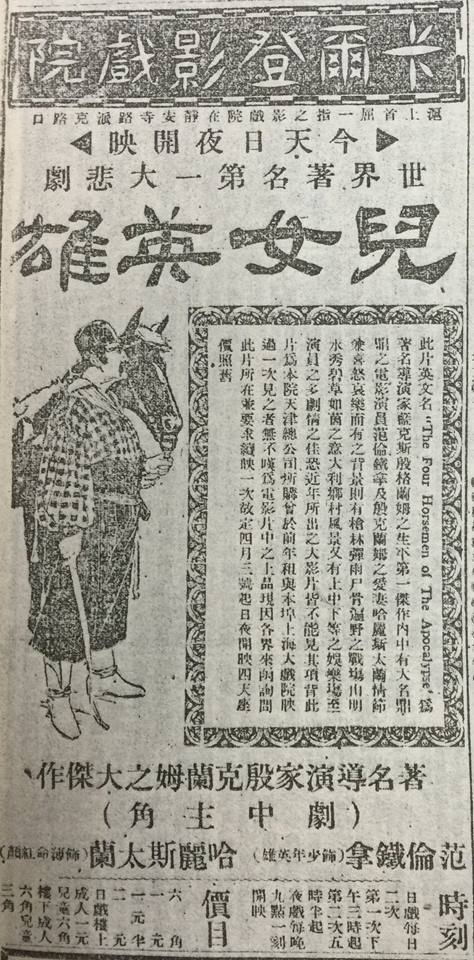 卡爾登影戲院
滬上首屈一指之影戲院在靜安寺路派克路口
今天日夜開映
世界著名第一大悲劇
兒女英雄
此片英文名“The Four Horsemen of The Apocalypse”為
著名導演家藍克斯殷格蘭姆之生平第一傑作內中有大名鼎
鼎之電影演員范倫鐵拿及殷克蘭姆之愛妻哈麗斯太蘭情節
兼喜怒哀樂而有之背景則有槍林彈雨尸骨遍野之戰場山明
水秀碧草如茵之意大利鄉村風景又有上中下等之娛樂場至
演員之多劇情之佳恐近年所出之大影片皆不能見其項背此
片為本院天津總公司所購曾於前年租與本埠上海大戲院映
過一次見之者無不嘆為電影片中之上品現因各界來函詢問
此片所在並要求續映一次故定四月三號起日夜開映四天座
價照舊
著名導演家殷克蘭姆之大傑作
（劇中主角）
范倫鐵拿（飾少年英雄）哈麗斯太蘭（飾薄命紅顏）
時刻
日戲每日
二次
第一次下
午三時起
第二次五
時半起
夜戲每晚
九點一刻
開映
價目
六角
一元
一元半
二元
日戲樓上
成人一元
兒童六角
樓下成人
六角兒童
三角